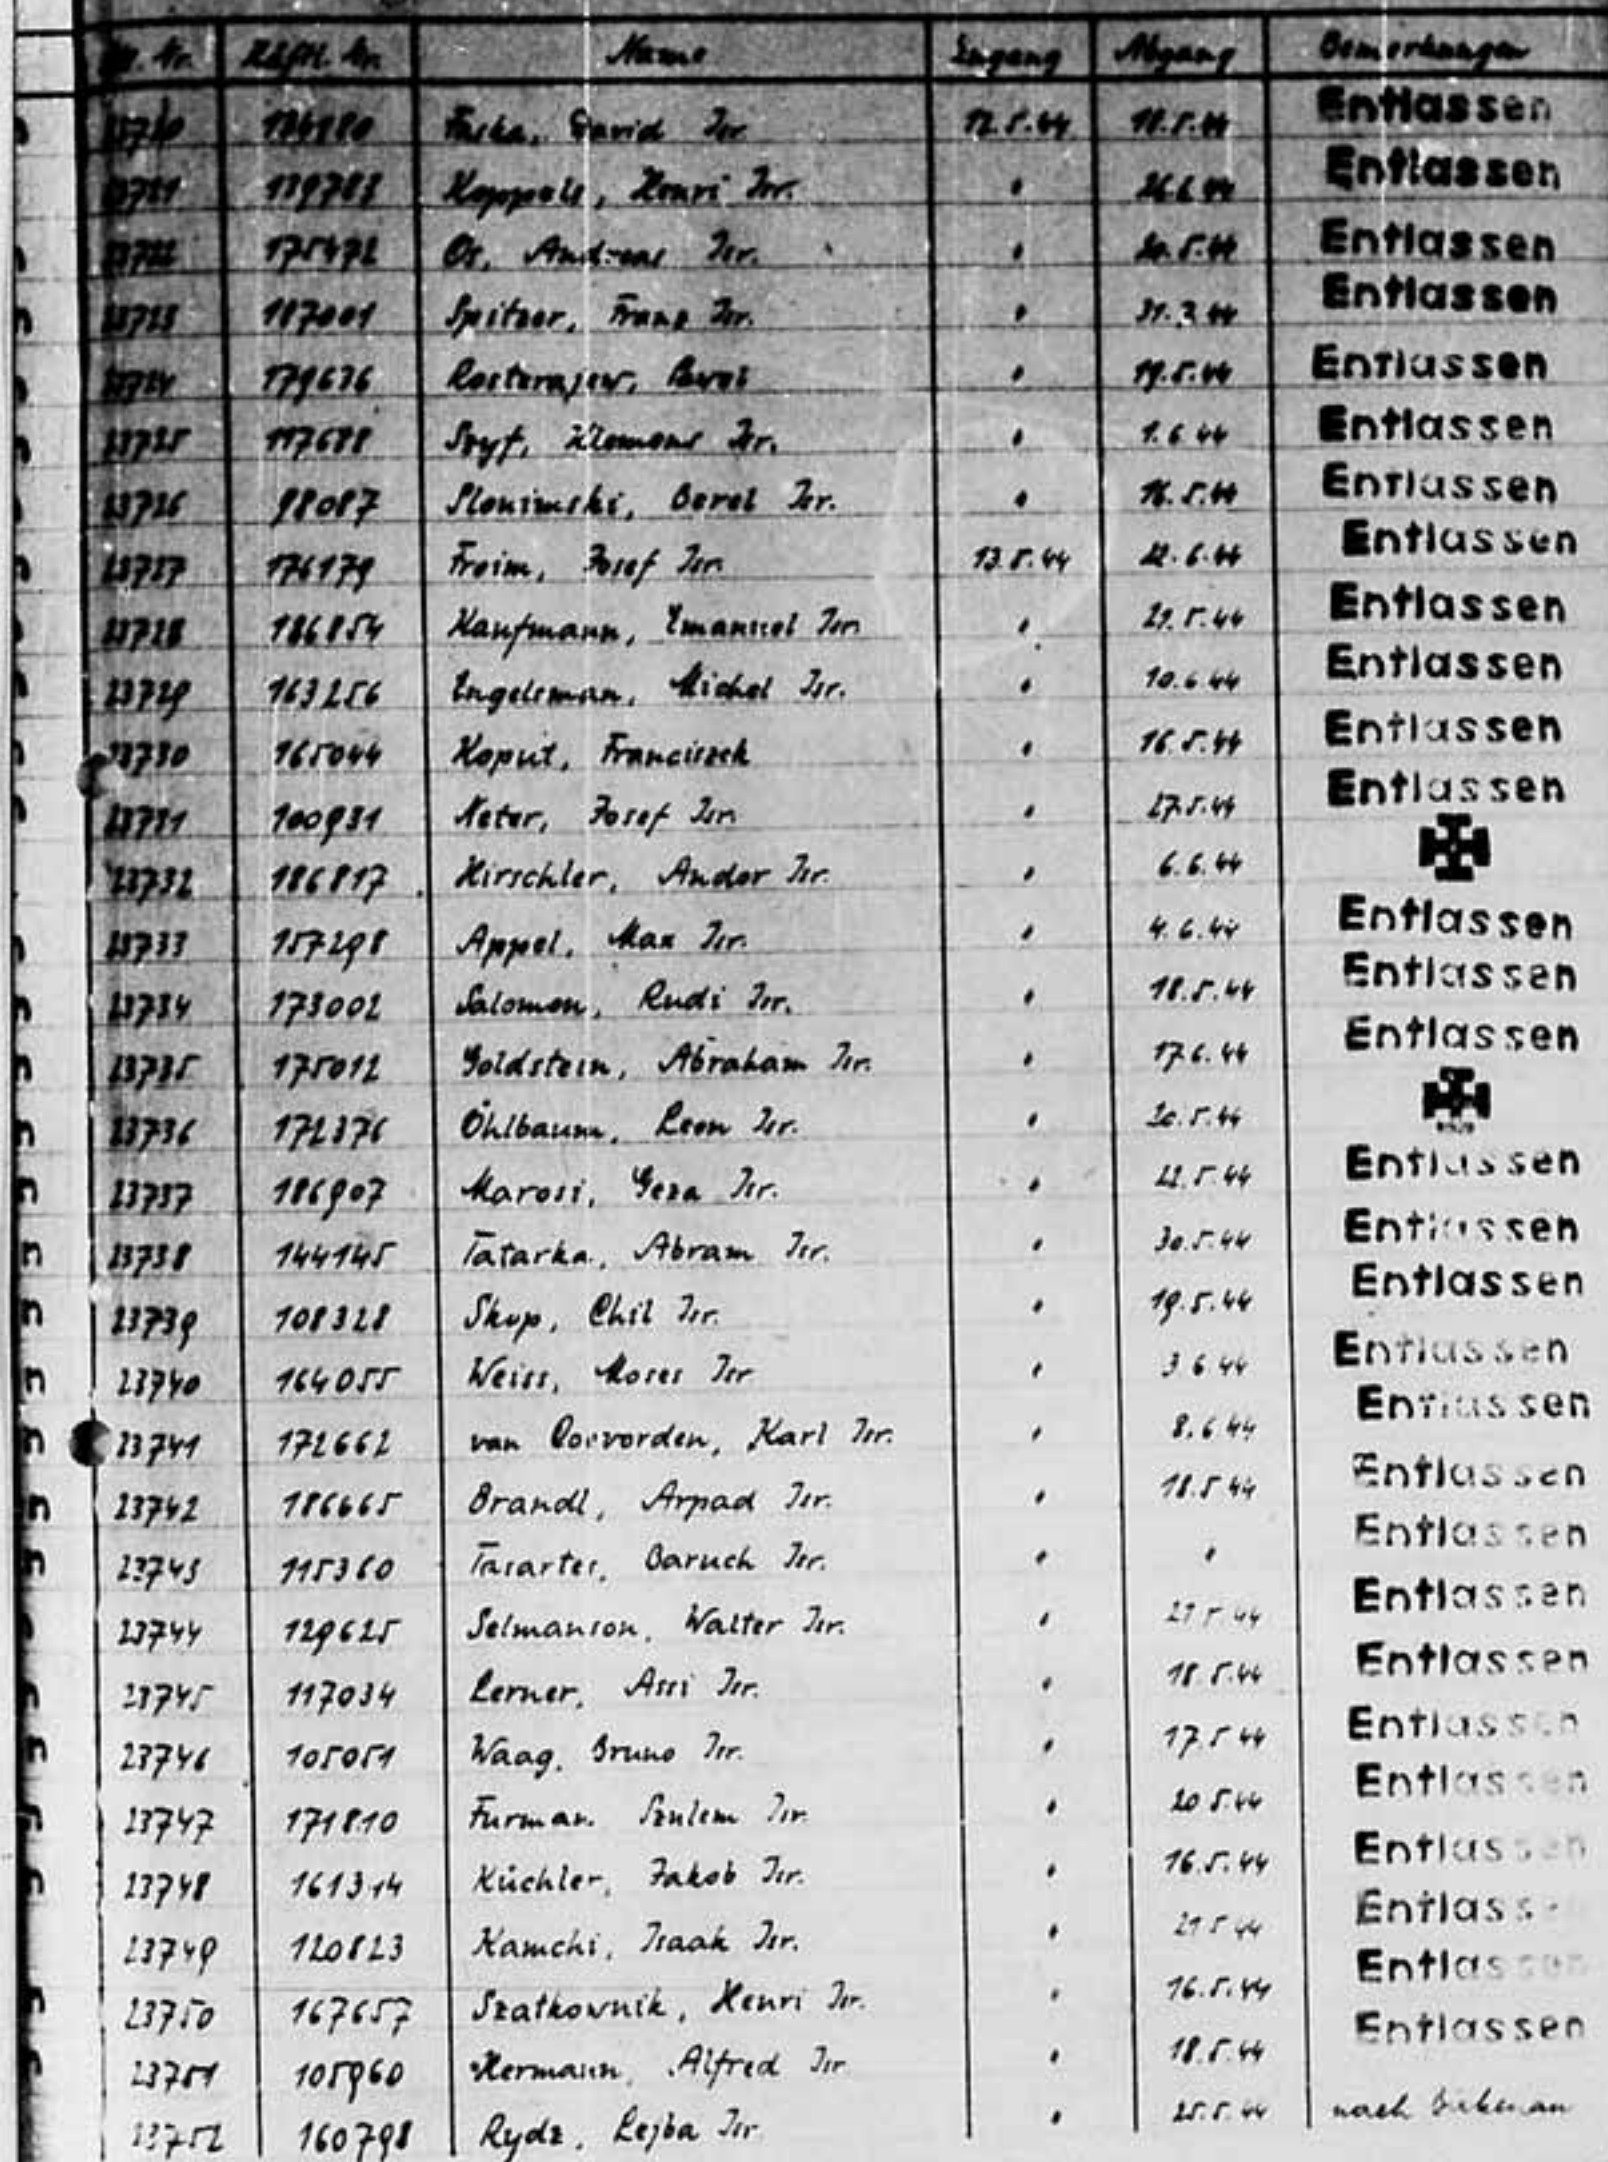 Name Eingang Abgang Bemerkungen
David Isr. 12.5.44 18.5.44 Entlassen
139783 Henri Isr. " 26.6.44 Entlassen
175472 Os, Andreas Isr. " 20.5.44 Entlassen
23723 187001 Spitzer, Franz Isr. " 31.3.44 Entlassen
23724 179636 " 19.5.44 Entlassen
23725 117688 Szyf, Klemens Isr. " 1.6.44 Entlassen
23726 98087 Slonimski, Berel Isr. " 16.5.44 Entlassen
23727 176179 Freim, Josef Isr. 13.5.44 22.6.44 Entlassen
23728 186854 Kaufmann, Emanuel Isr. " 21.5.44 Entlassen
23729 163256 Engelsman, Michel Isr. " 10.6.44 Entlassen
23730 165044 Koput, Franciszek " 16.5.44 Entlassen
23731 100931 Neter, Josef Isr. " 27.5.44 Entlassen
23732 186817 Hirschler, Andor Isr. " 6.6.44
23733 157298 Appel, Max Isr. " 4.6.44 Entlassen
23734 173002 Salomon, Rudi Isr. " 18.5.44 Entlassen
23735 175012 Goldstein, Abraham Isr. " 17.6.44 Entlassen
23736 172376 Öhlbaum, Leon Isr. " 20.5.44
23737 186907 Marosi, Geza Isr. " 22.5.44 Entlassen
23738 144145 Tatarka, Abram Isr. " 30.5.44 Entlassen
23739 108328 Skop, Chil Isr. " 19.5.44 Entlassen
23740 164055 Weiss, Moses Isr " 3 6 44 Entlassen
23741 172662 van Coevorden, Karl Isr. " 8.6 44 Entlassen
23742 186665 Brandl, Arpad Isr. " 18.5 44 Entlassen
23743 115360 Tasartes, Baruch Isr. " " Entlassen
23744 129625 Selmanson, Walter Isr. " 21 5 44 Entlassen
23745 117034 Lerner, Assi Isr. " 18 5.44 Entlassen
23746 105051 Waag, Bruno Isr. " 17.5 44 Entlassen
23747 171810 Furman. Szulem Isr. " 20 5.44 Entlassen
23748 161314 Küchler, Jakob Isr. " 16.5.44 Entlassen
23749 120823 Kamchi, Isaak Isr. " 21 5 44 Entlassen
23750 167657 Szatkownik, Henri Isr. " 16.5.44 Entlassen
23751 105960 Hermann, Alfred Isr " 18.5.44 Entlassen
23752 160798 Rydz, Lejba Isr " 25.5.44 nach Birkenau